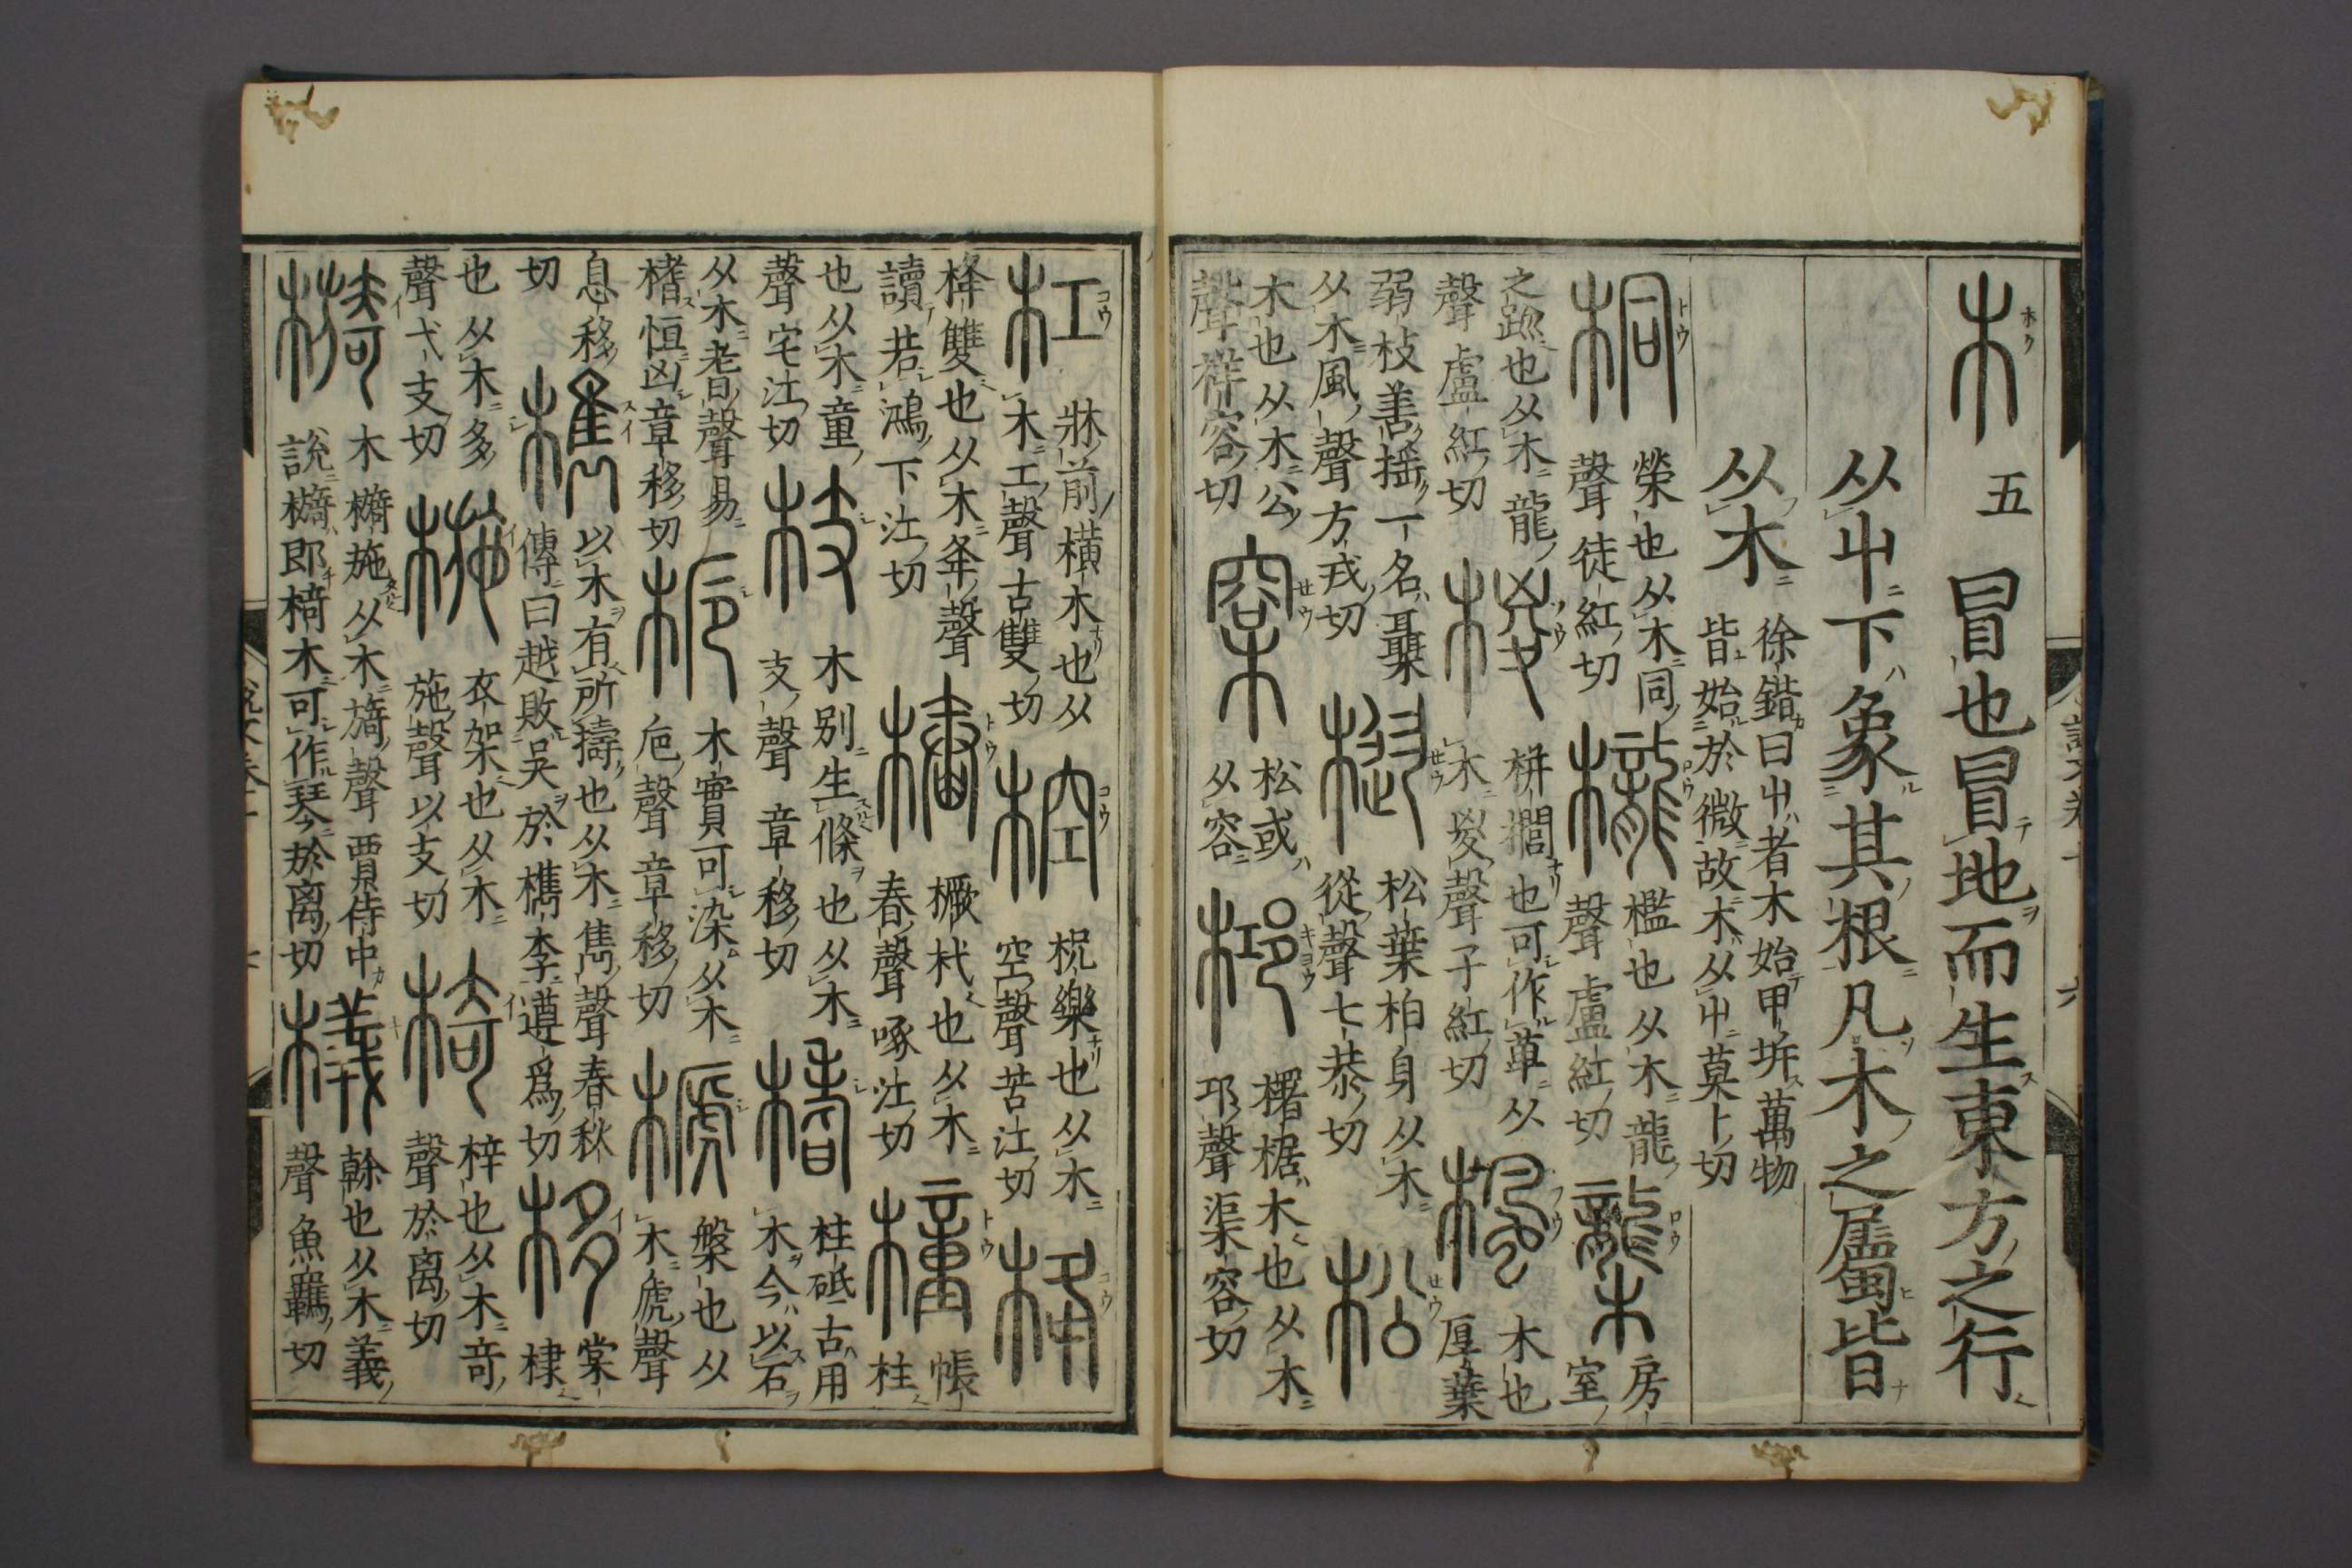 木 五 冒也冒地而生東方之行
从屮下象其根凡木之屬皆
从木 徐錯曰屮者木始甲坼萬物
皆始於微故木从屮莫卜切
桐 榮也从木同
聲徒紅切
櫳 檻也从木龍
聲盧紅切
櫳 房
室
之䟽也从木龍
聲盧紅切
椶 栟櫚也可作萆从
木㚇聲子紅切
楓 木也
厚葉
弱枝善搖一名聶
从木風聲方戎切
樅 松葉柏身从木
從聲七恭切
松
木也从木公
聲祥容切
㮤 松或
从容
桏 櫡椐木也从木
邛聲渠容切
杠 牀前橫木也从
木工聲古雙切
椌 柷樂也从木
空聲苦江切
栙
栙雙也从木夅聲
讀若鴻下江切
樁 橛杙也从木
舂聲啄江切
橦 帳
柱
也从木童
聲宅江切
枝 木別生條也从木
支聲章移切
榰 柱砥古用
木今以石
从木耆聲易
榰恒凶章移切
梔 木實可染从木
巵聲章移切
榹 槃也从
木虒聲
息移
切
檇 以木有所擣也从木雋聲春秋
傳曰越敗吳於檇李遵爲切
栘 棠
棣
也从木多
聲弋支切
椸 衣架也从木
施聲以支切
椅 梓也从木奇
聲於离切
檹 木檹施从木旖聲賈侍中
說檹即椅木可作琴於离切
檥 榦也从木義
聲魚羈切